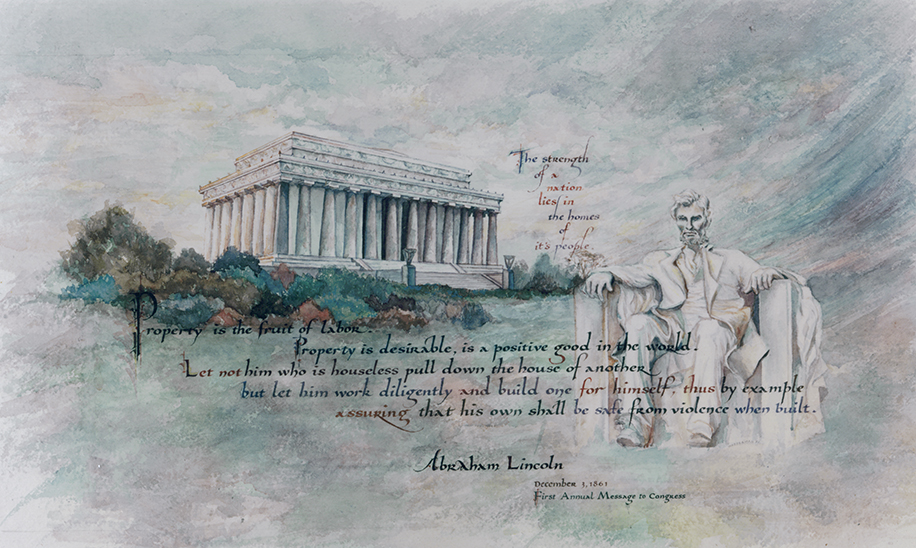 The strength
of a
nation
lies in
the homes
of
it's people.
Property is the fruit of labor.
Property is desirable, is a positive good in the world.
Let not him who is houseless pull down the house of another
but let him work diligently and build one for himself, thus by example
assuring that his own shall be safe from violence when built.
Abraham Lincoln
December 3, 1861
First Annual Message to Congress